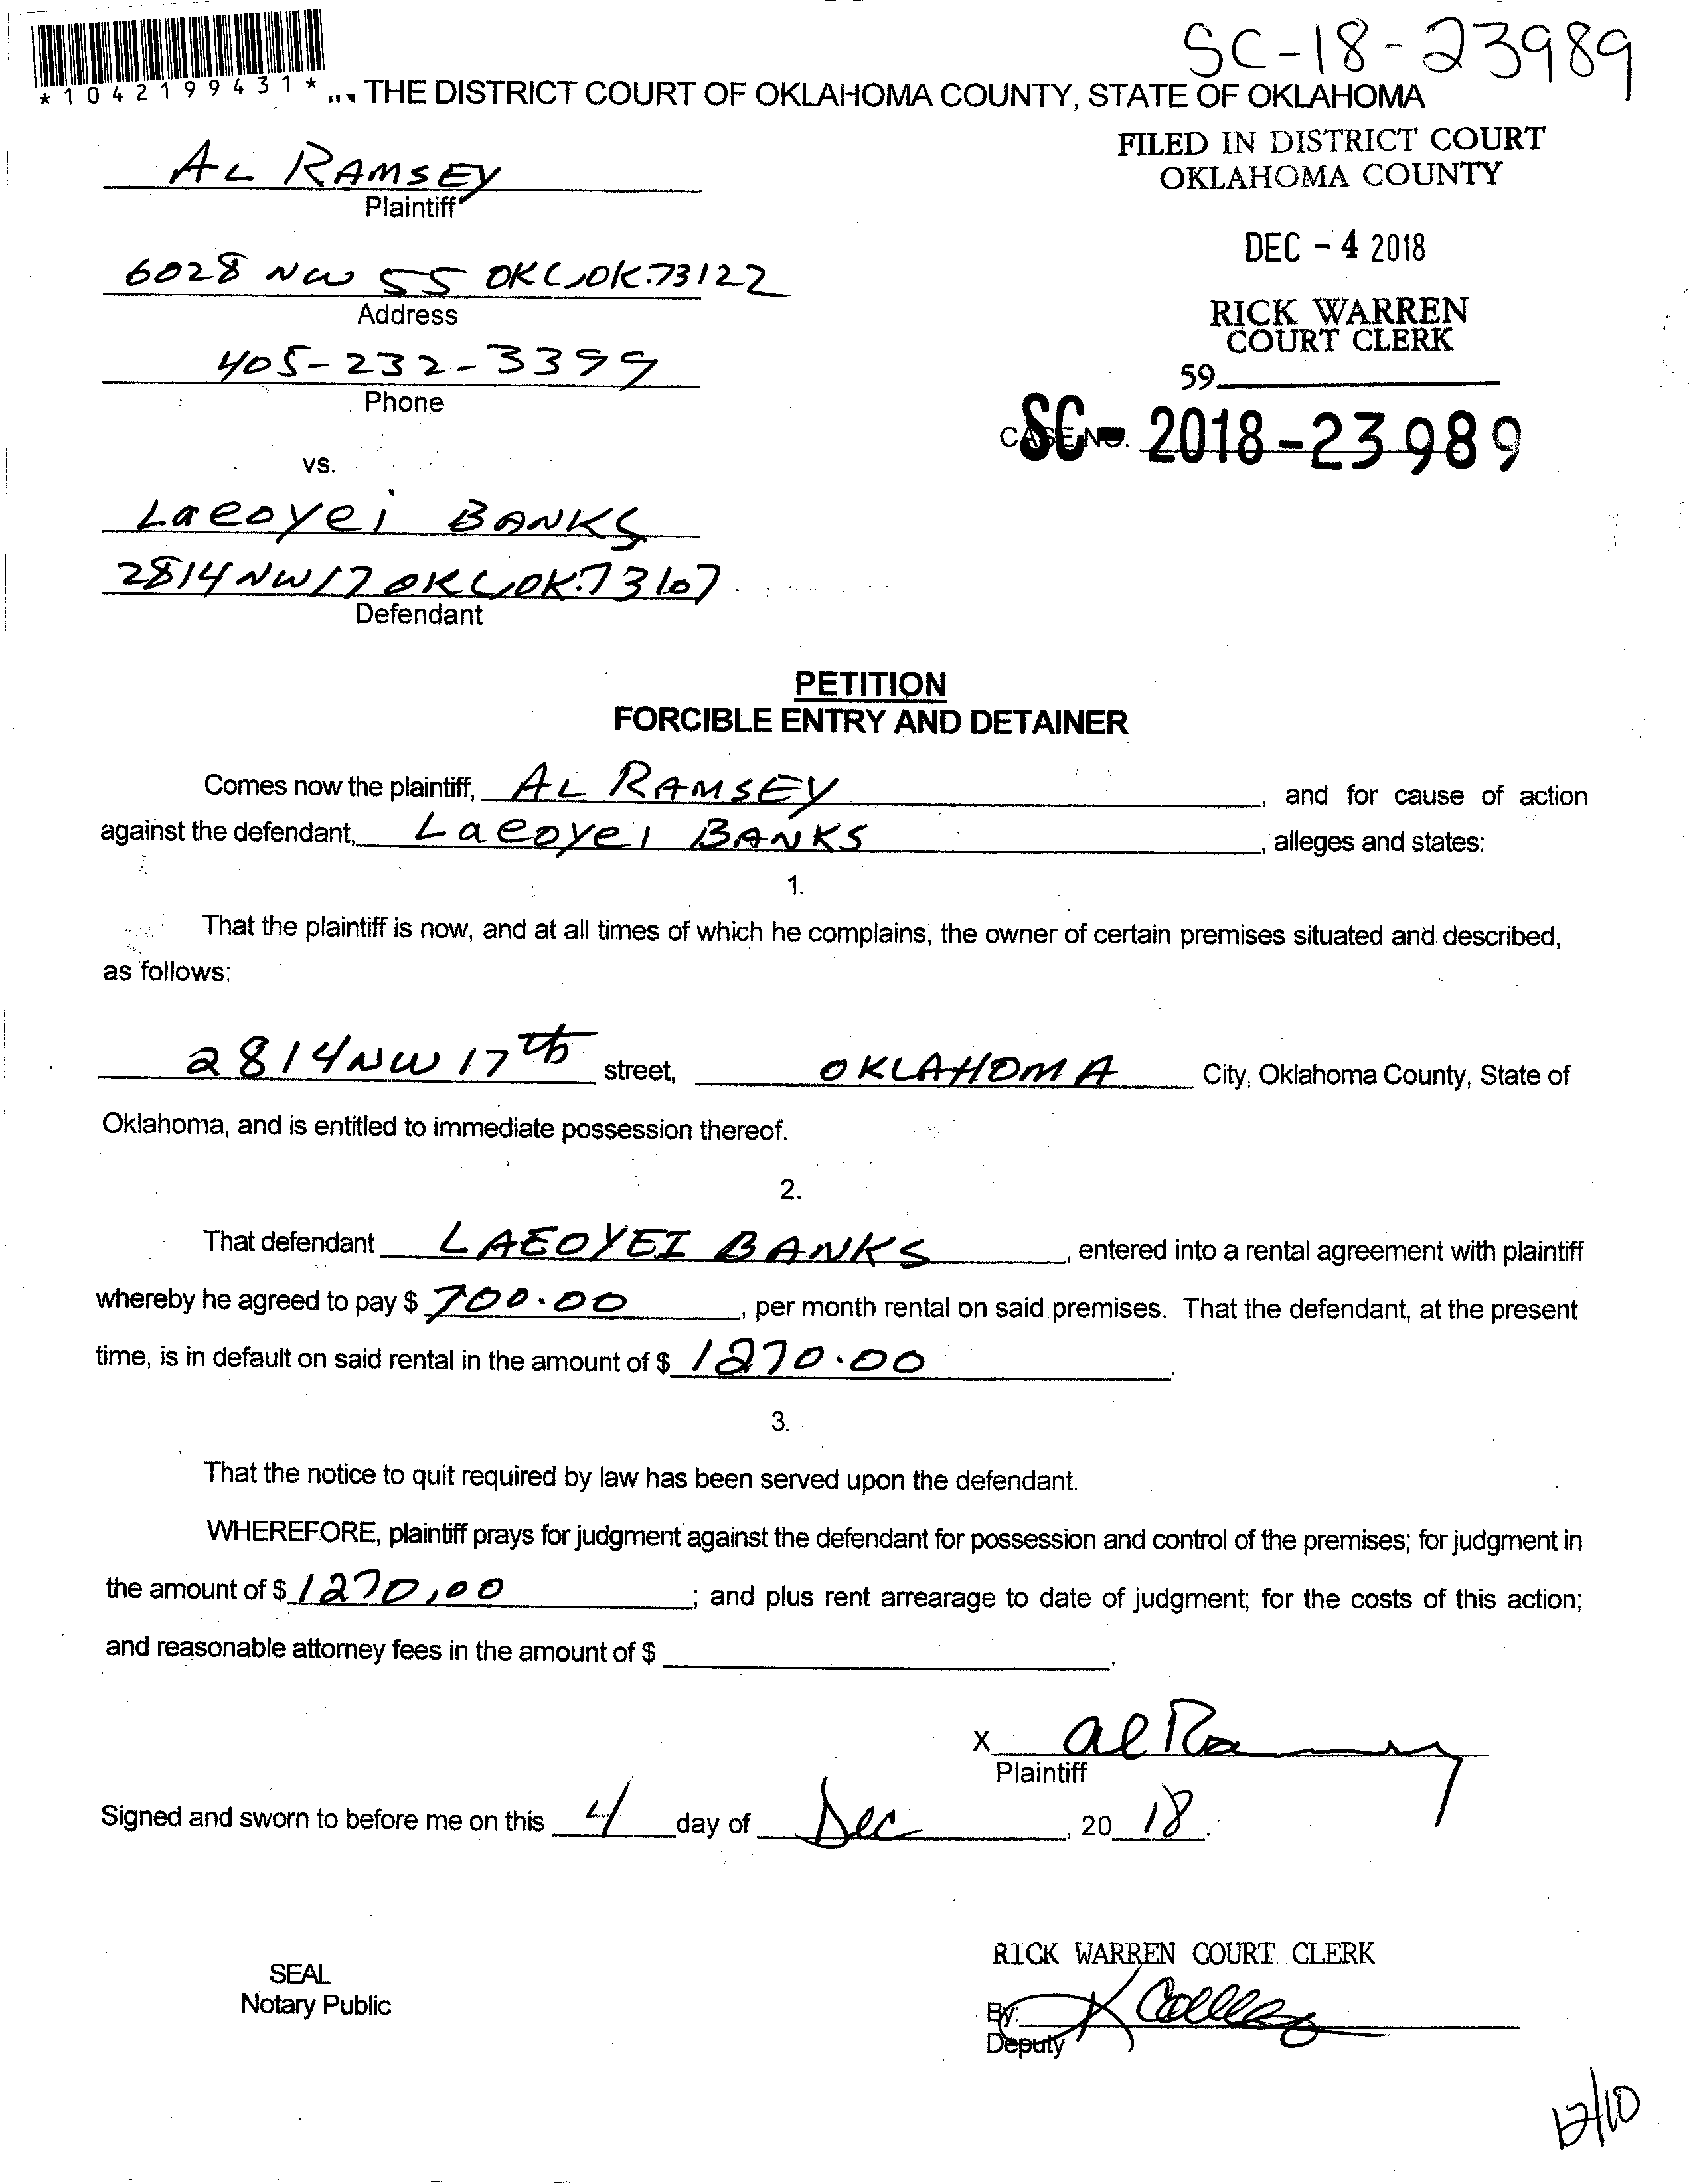 SC-18-23989
*1042199431*
THE DISTRICT COURT OF OKLAHOMA COUNTY, STATE OF OKLAHOMA
FILED IN DISTRICT COURT
OKLAHOMA COUNTY
AL RAMSEY
Plaintiff
DEC - 4 2018
6028 NW 55 OKC, OK. 73122
Address
RICK WARREN
COURT CLERK
405-232-3399
Phone
59
CASE NO. SC- 2018-23989
vs.
Laeoyei BANKS
2814 NW 17 OKC, OK. 73107
Defendant
PETITION
FORCIBLE ENTRY AND DETAINER
Comes now the plaintiff, AL RAMSEY, and for cause of action
against the defendant, Laeoyei BANKS, alleges and states:
1.
That the plaintiff is now, and at all times of which he complains, the owner of certain premises situated and described,
as follows:
2814 NW 17th street, OKLAHOMA City, Oklahoma County, State of
Oklahoma, and is entitled to immediate possession thereof.
2.
That defendant LAEOYEI BANKS, entered into a rental agreement with plaintiff
whereby he agreed to pay $ 700.00, per month rental on said premises. That the defendant, at the present
time, is in default on said rental in the amount of $ 1270.00.
3.
That the notice to quit required by law has been served upon the defendant.
WHEREFORE, plaintiff prays for judgment against the defendant for possession and control of the premises; for judgment in
the amount of $ 1270,00; and plus rent arrearage to date of judgment; for the costs of this action;
and reasonable attorney fees in the amount of $ .
X Al Ramsey
Plaintiff
Signed and sworn to before me on this 4 day of Dec, 20 18.
RICK WARREN COURT CLERK
SEAL
Notary Public
By:
Deputy
12/10